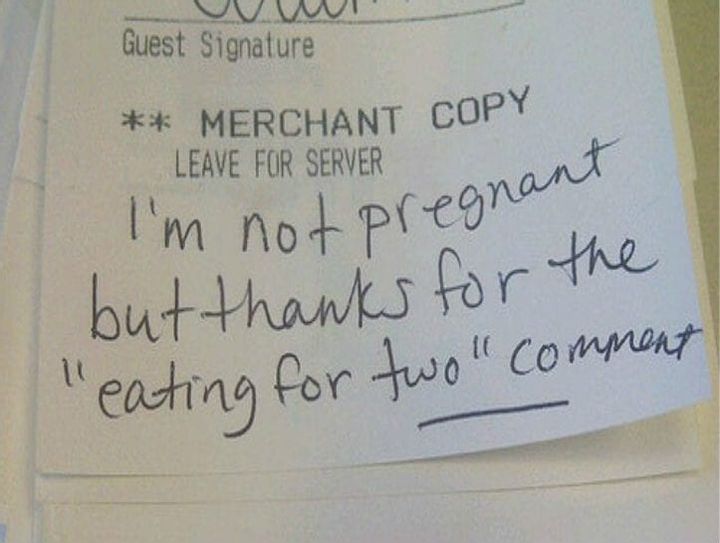 Guest Signature
** MERCHANT COPY
LEAVE FOR SERVER
I'm not pregnant
but thanks for the
"eating for two" comment